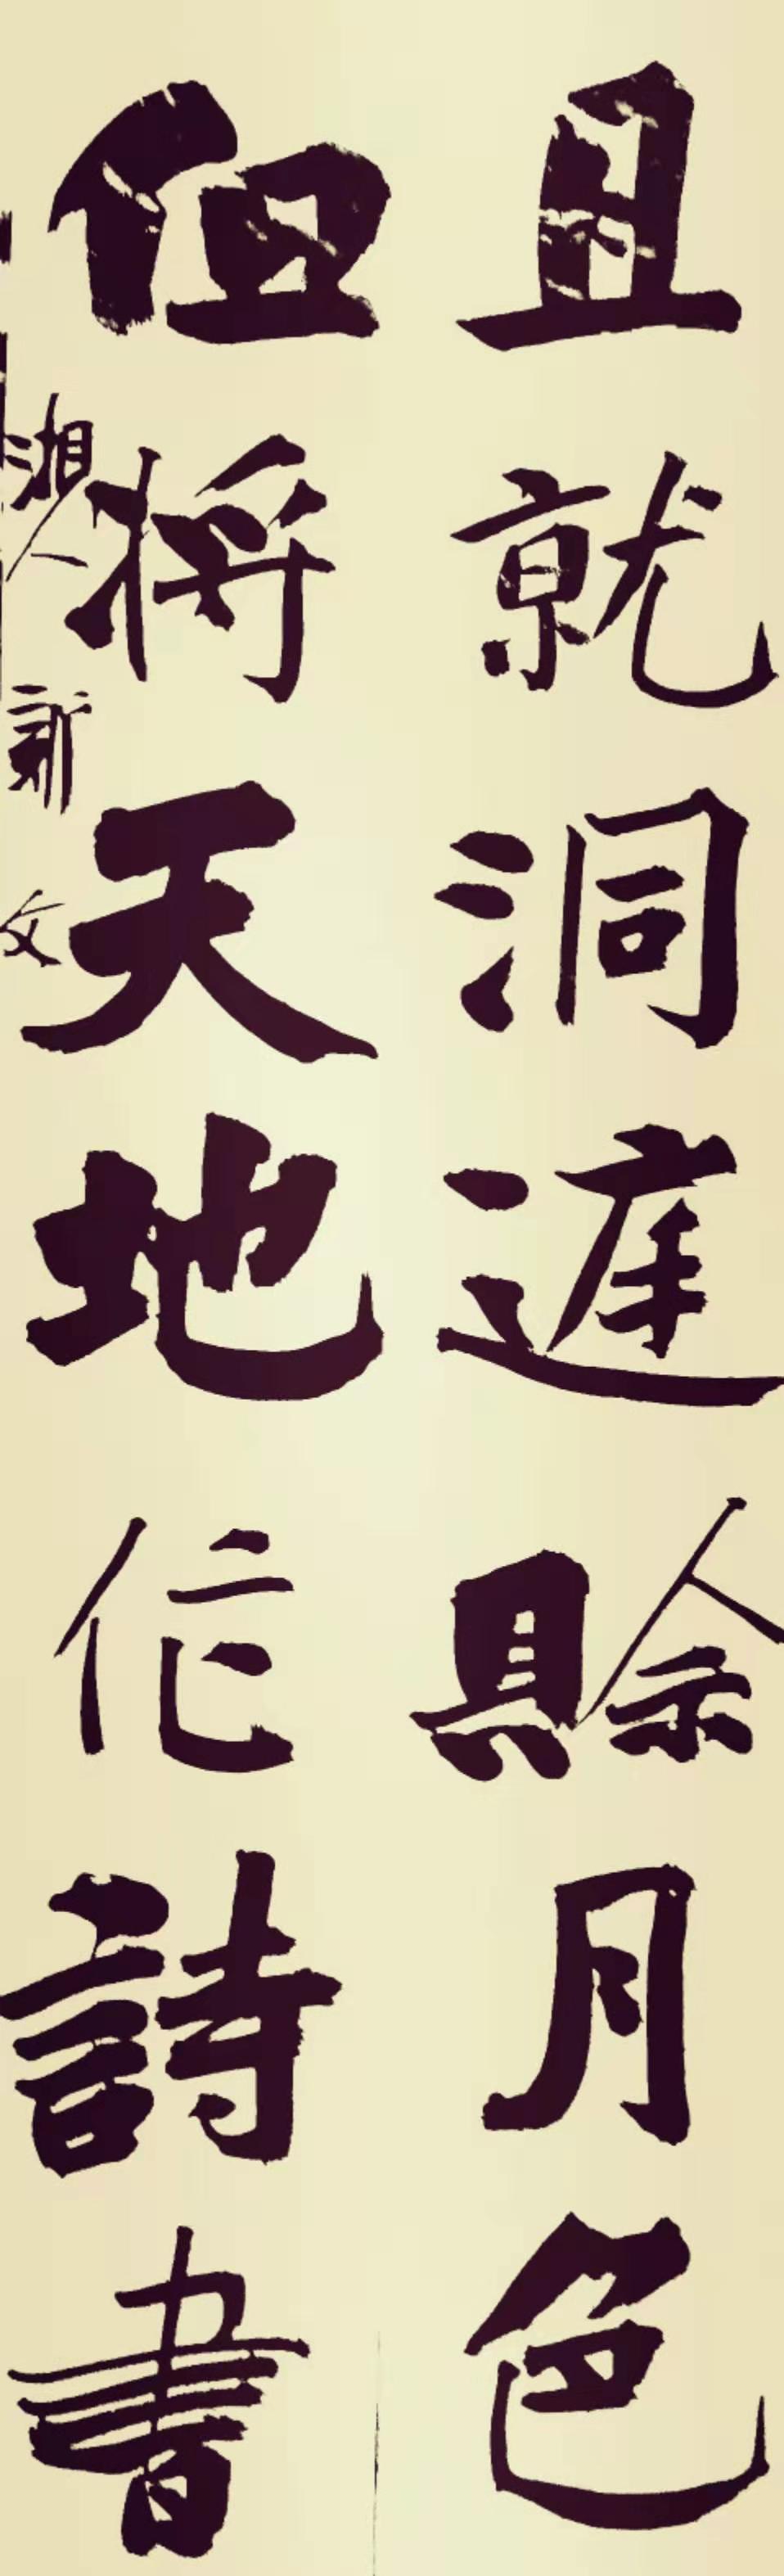 且就洞庭賖月色
但将天地作詩書
湘人 新文